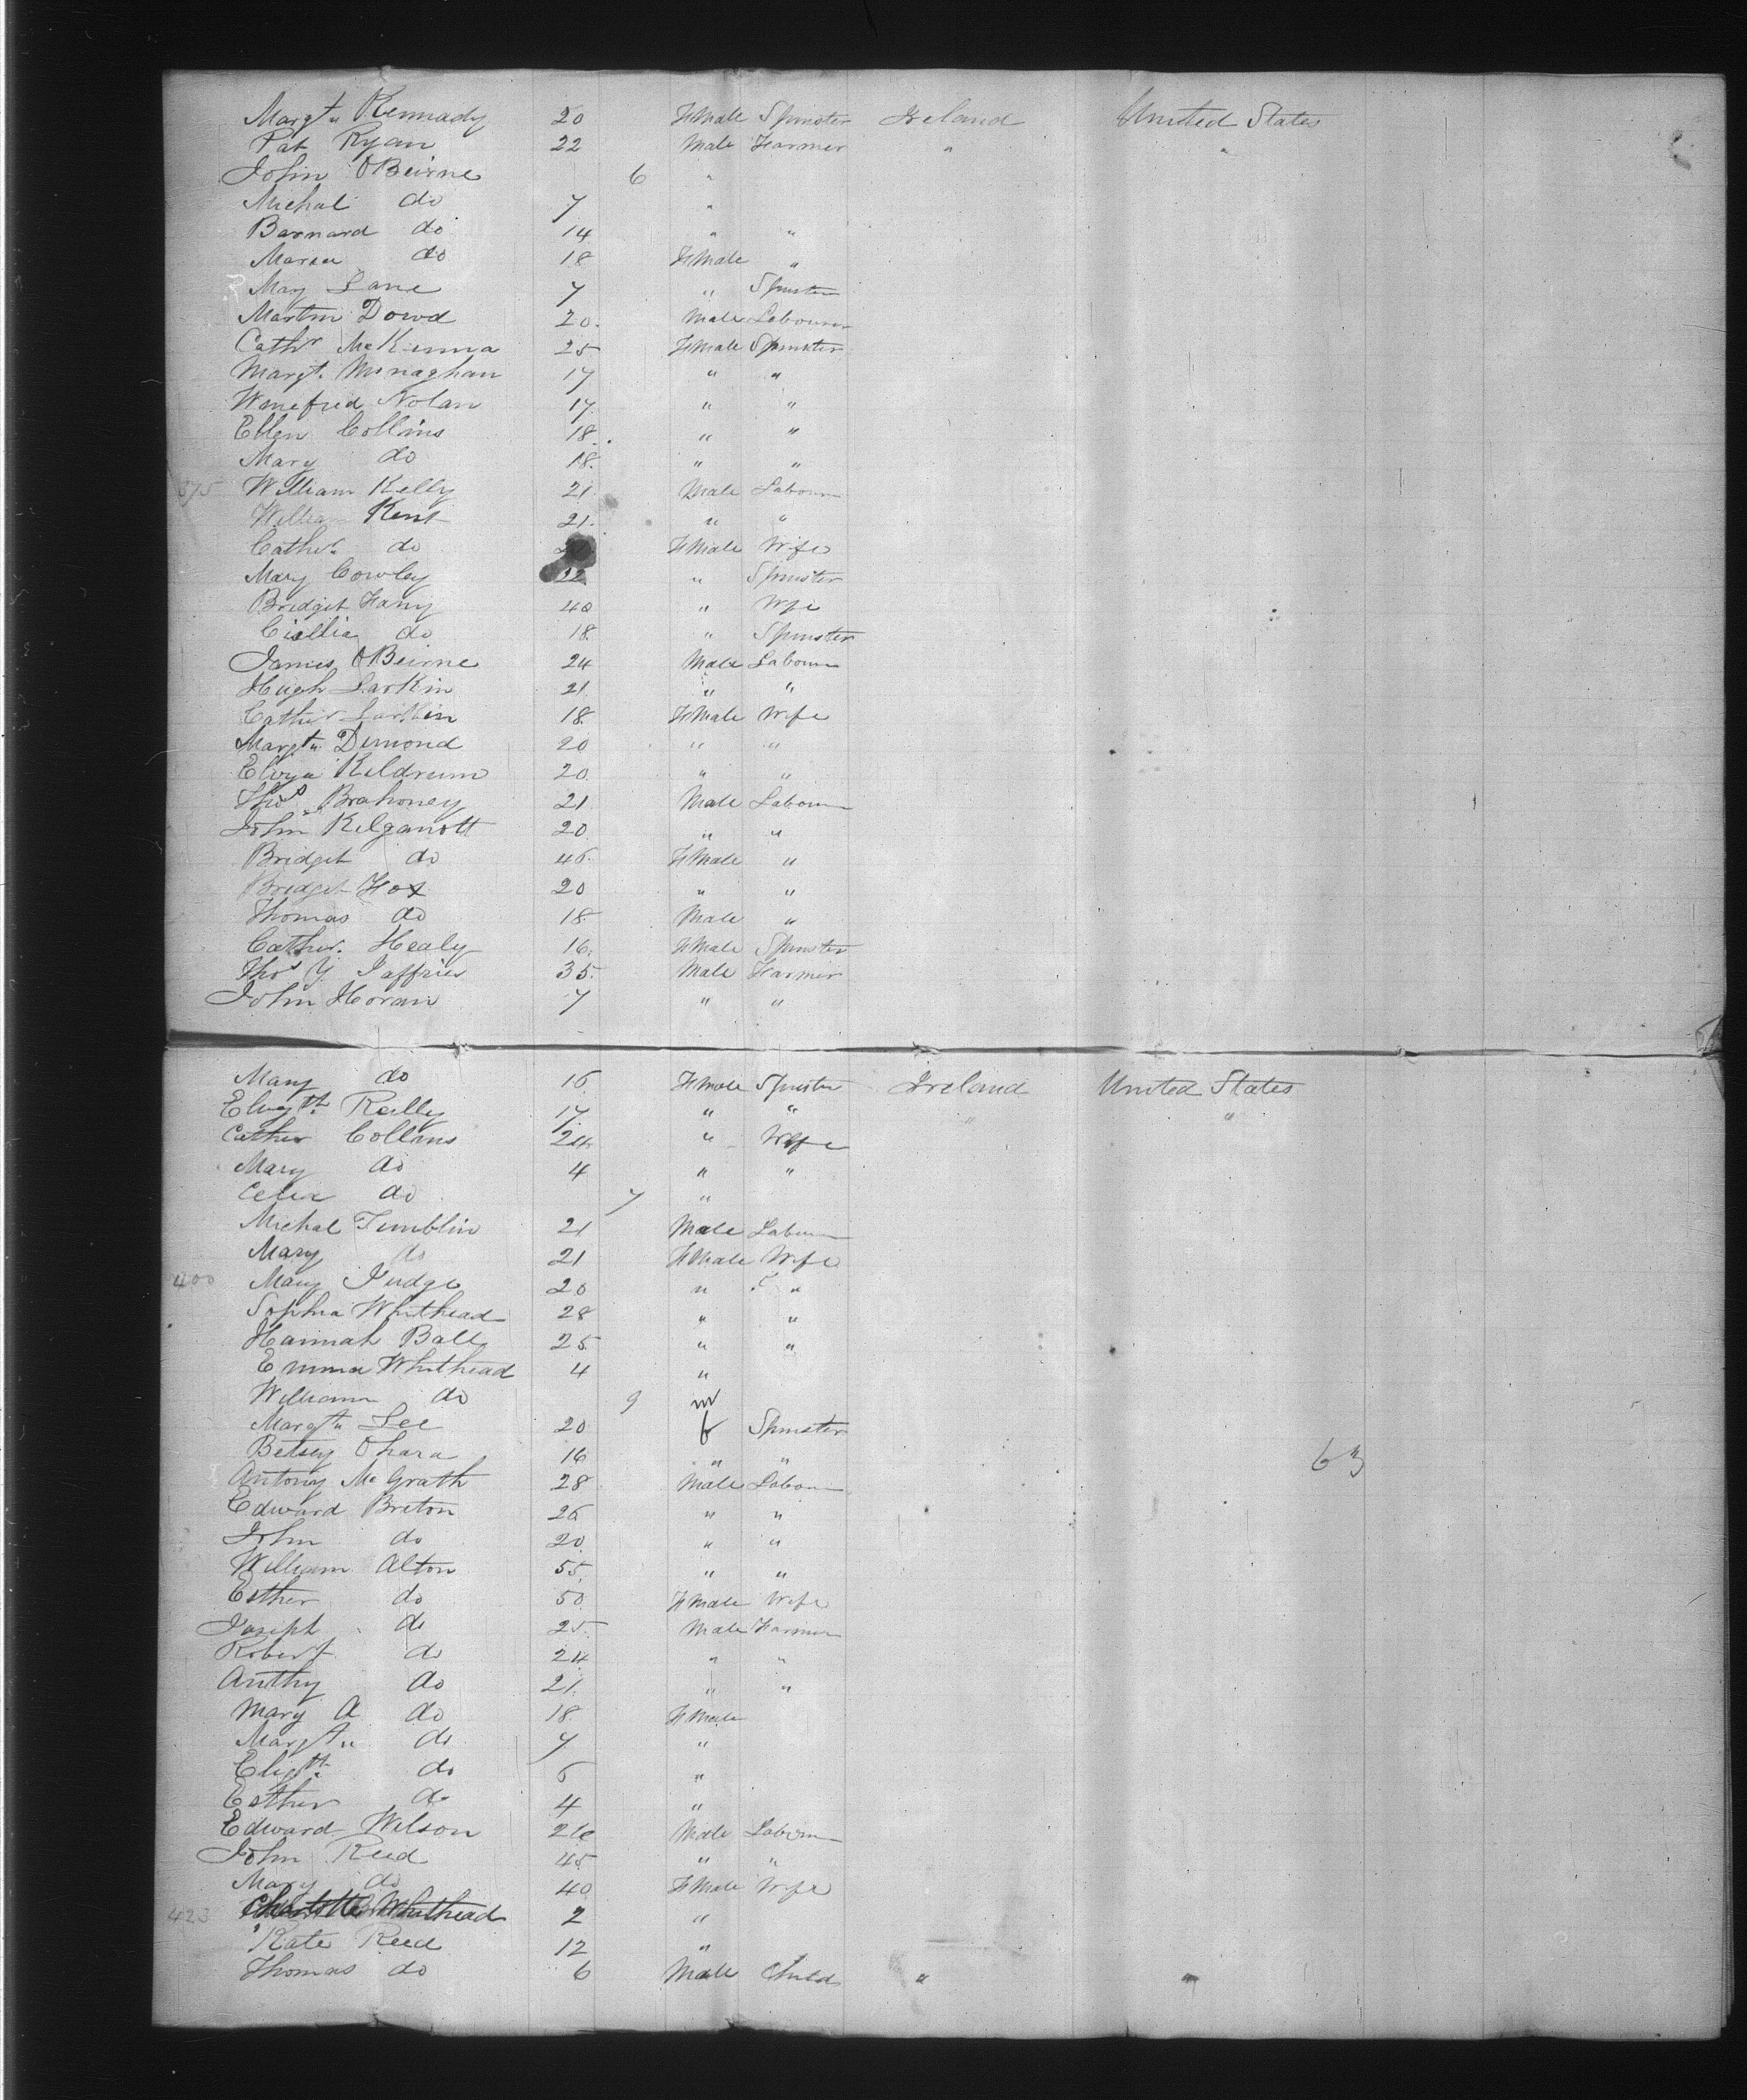 Margtu Kennady 20 Female Spinster Ireland United States
Pat Ryan 22 Male Farmer " "
John OBeirne 6 "
Michal do 7 "
Barnard do 14 " "
Maria do 18 Female "
Mary Lane 7 " Spinster
Martin Dowd 20 Male Labourer
Cathr McKenna 25 Female Spinster
Margt. Monaghan 17 " "
Winefred Nolan 17 " "
Ellen Collins 18 " "
Mary do 18 " "
375 William Kelly 21 Male Labour
William Kent 21 " "
Cather do Female Wife
Mary Cowley 22 " Spinster
Bridget Fany 40 " Wife
Cicillia do 18 " Spinster
James OBeirne 24 Male Labour
Hugh Larkin 21 " "
Cather Larkin 18 Female Wife
Margtu Dimond 20 " "
Eliza Kildreum 20 " "
Thos Brahoney 21 Male Labour
John Kilganott 20 " "
Bridget do 45 Female "
Bridget Fox 20 " "
Thomas do 18 Male "
Cather. Healy 16 Female Spinster
Thos Y Jaffries 35 Male Farmer
John Horan 7 " "
Mary do 16 Female Spinster Ireland United States
Elizth Reilly 17 " " " "
Cather Collins 24 " Wife
Mary do 4 " "
Celia do 7 "
Michal Tumblin 21 Male Labour
Mary do 21 Female Wife
400 Mary Judge 20 " "
Sophia Whithead 28 " "
Hannah Ball 25 " "
Emma Whithead 4 "
William do 9 m
Margtu Lee 20 f Spinster
Betsey Ohara 16 " " 63
Antony McGrath 28 Male Labour
Edward Breton 26 " "
John do 20 " "
William Alton 55 " "
Esther do 50 Female Wife
Joseph do 25 Male Farmer
Robert do 24 " "
Anthy do 21 " "
Mary A do 18 Female
Margtu do 7 "
Elizth do 6 "
Esther do 4 "
Edward Wilson 26 Male Labour
John Reed 45 " "
Mary do 40 Female Wife
423 Charlotte Whithead 2 "
Kate Reed 12 "
Thomas do 6 Male Child " "